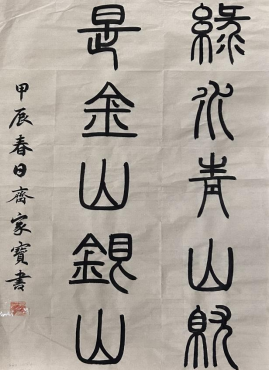 綠水青山就
是金山銀山
甲辰春日齋家寶書